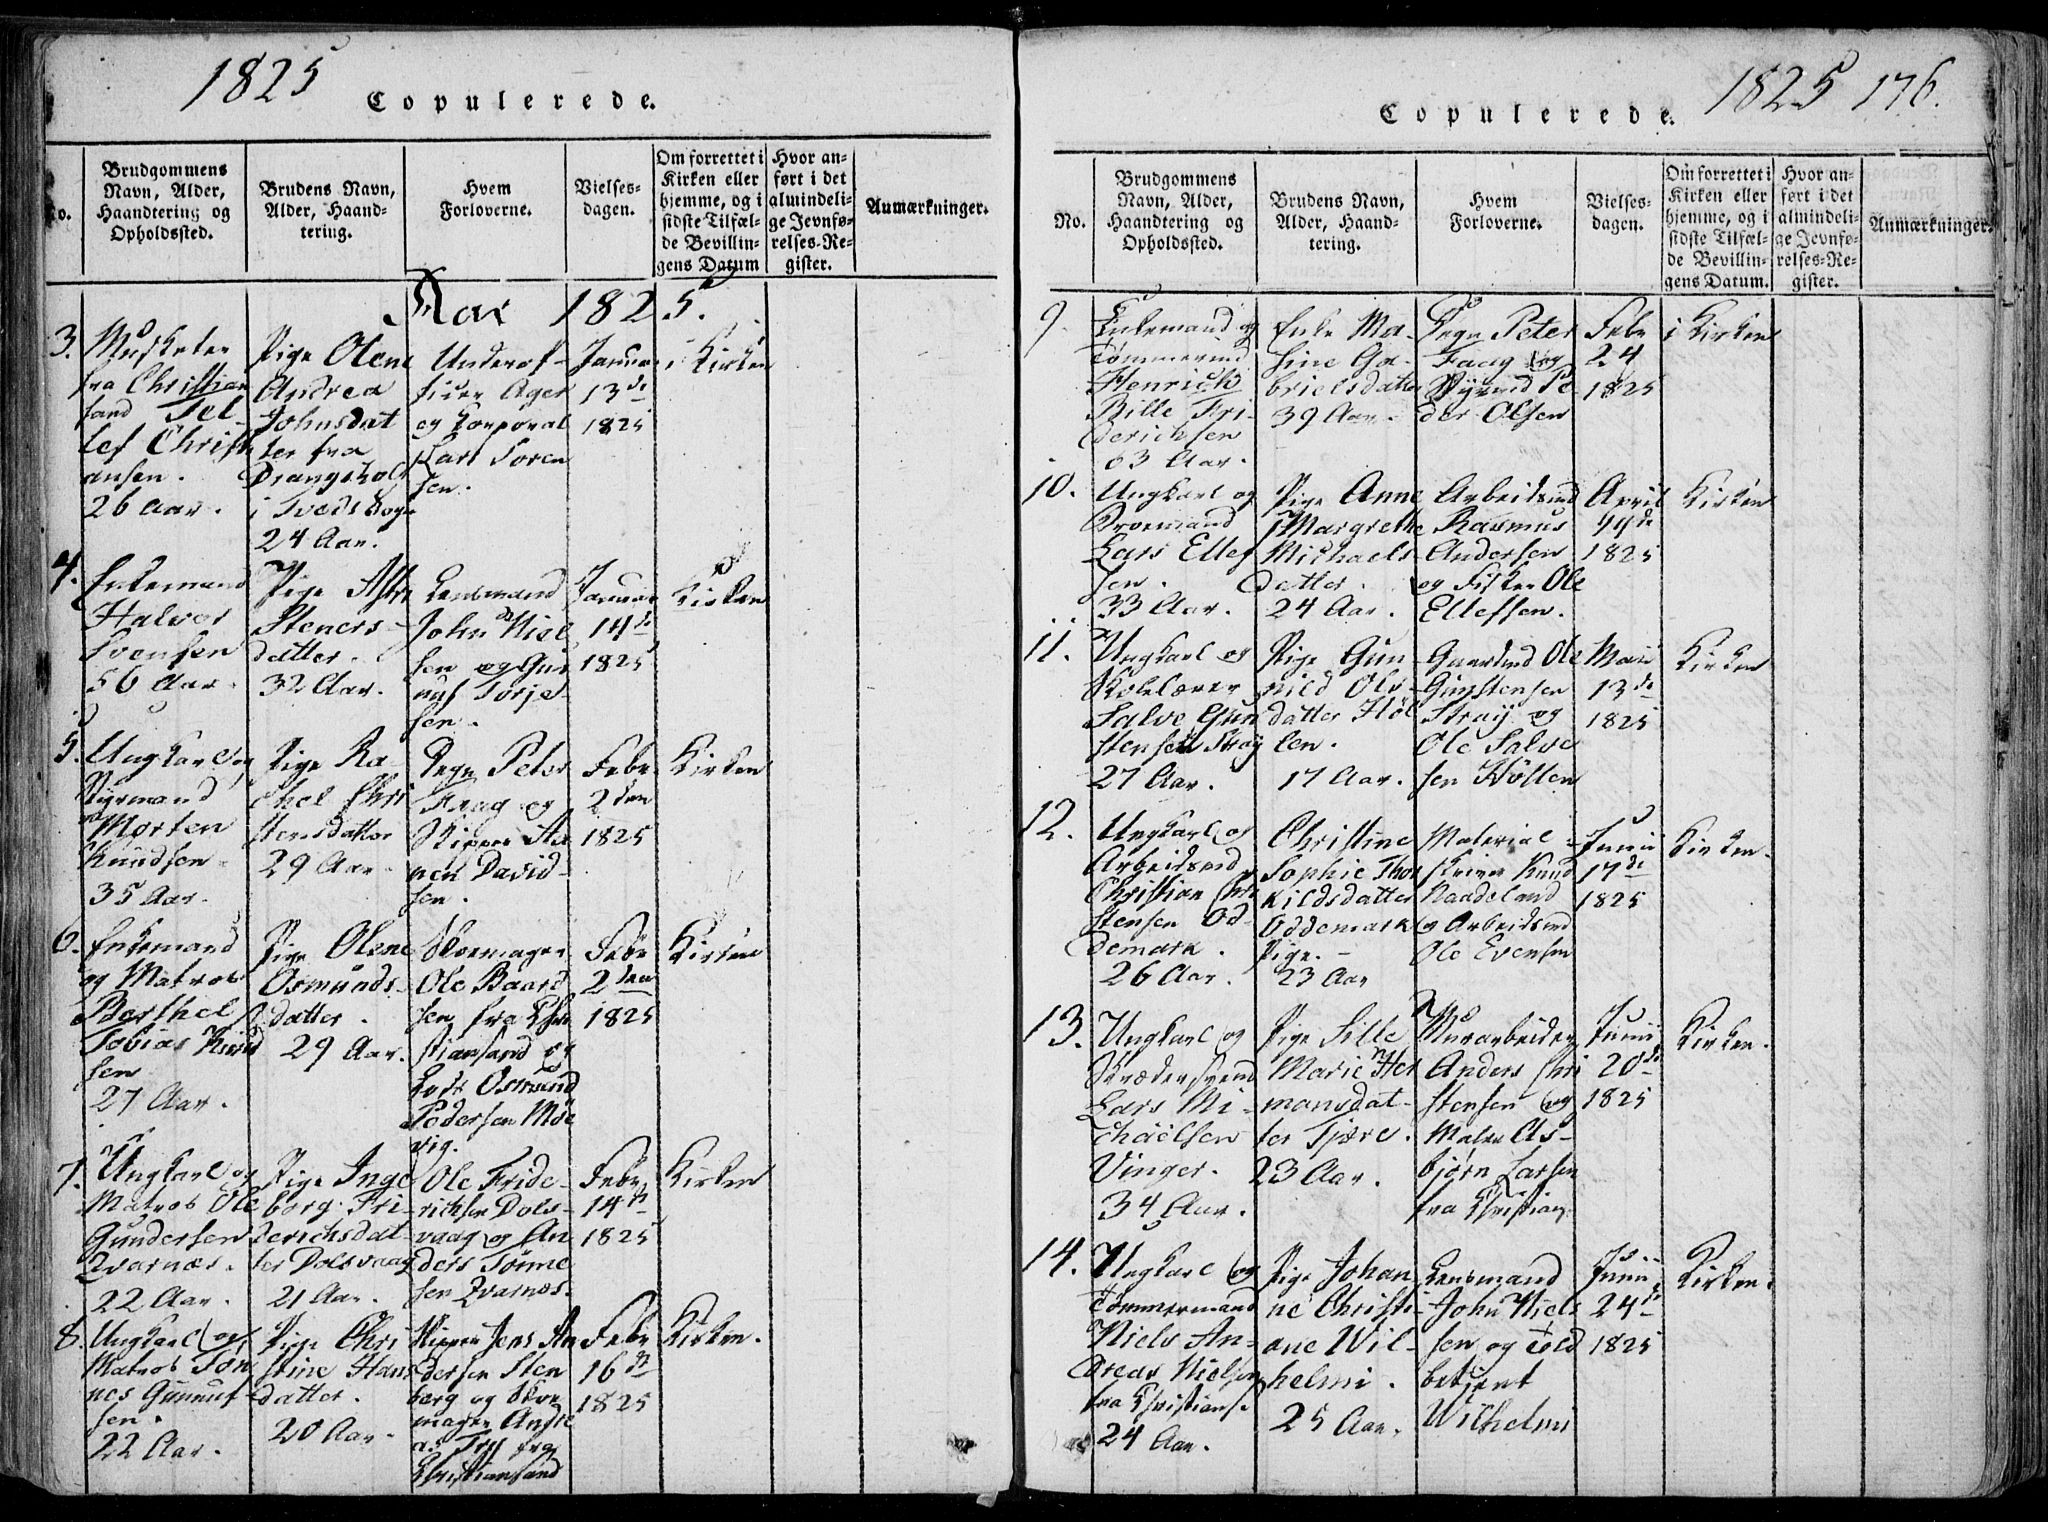 1825
Copulerede.
No.
Brudgommens
Navn, Alder,
Haandtering og
Opholdssted.
Brudens Navn,
Alder, Haand-
tering.
Hvem
Forloverne.
Vielses-
dagen.
Om forrettet i
Kirken eller
hjemme, og i
sidste Tilfæl-
de Bevillin-
gens Datum
Hvor an-
ført i det
almindeli-
ge Jevnfø-
relses-Re-
gister.
Anmærkninger.
Aar 1825.
3.
Musketer
fra Christian
sand Tel
lef Christi
ansen.
26 Aar.
Pige Olene
Andrea
Johnsdat
ter fra
Drangsholt
i Tveds Sogn
24 Aar.
Underof-
ficer Ager
og Corporal
Lars Soren
sen.
Januar
13de
1825
i Kirken
4.
Enkemand
Halvor
Svensen
56 Aar.
Pige Astri
Steners-
datter.
32 Aar.
Lensmand
John Niel
sen og Gun
nuf Torje-
sen.
Januar
14de
1825
Kirken
5.
Ungkarl og
Styrmand
Morten
Knudsen
35 Aar.
Pige Ra-
chel Chri
stensdatter
29 Aar.
Pege Peter
Faag og
Skipper Aa
nen David-
sen.
Febr
2den
1825
Kirken
6.
Enkemand
og Matros
Berthel
Tobias Knud
sen
27 Aar.
Pige Olene
Osmunds-
datter.
29 Aar.
Skomager
Ole Baard
sen fra Chri
stiansand og
Lods Osmund
Pedersen Møe
vig.
Febr
2den
1825
Kirken
7.
Ungkarl og
Matros Ole
Gundersen
Qvarnæs.
22 Aar.
Pige Inge
borg Fri-
derichsdat-
ter Dolsvaag
21 Aar.
Ole Fride-
richsen Dols-
vaag og An
ders Tønne
sen Qvarnæs.
Febr
14de
1825
Kirken
8.
Ungkarl og
Matros Tøn
nes Gunnuf-
sen.
22 Aar.
Pige Chri
stine Hans
datter.
20 Aar.
Skipper Jens An
dersen Sten
berg og Skoe
mager Andre
as Try fra
Christiansand
Febr
16de
1825
Kirken.
1825 176.
Copulerede.
No.
Brudgommens
Navn, Alder,
Haandtering og
Opholdssted.
Brudens Navn,
Alder, Haand-
tering.
Hvem
Forloverne.
Vielses-
dagen.
Om forrettet i
Kirken eller
hjemme, og i
sidste Tilfæl-
de Bevillin-
gens Datum.
Hvor an-
ført i det
almindeli-
ge Jevnfø-
relses-Re-
gister.
Anmærkninger.
9.
Enkemand og
Tømmermd
Henrich
Bille Fri-
derichsen
63 Aar.
Enke Ma-
sine Ga-
brielsdatter
39 Aar.
Pege Peter
Faag og
Styrmd Pe
der Olsen
Febr
24
1825
i Kirken
10.
Ungkarl og
Proemand
Lars Ellef
sen.
33 Aar.
Pige Anne
Margrethe
Michaels-
datter.
24 Aar.
Arbeidsmd
Rasmus
Andersen
og Fisker Ole
Ellefsen.
April
14de
1825
Kirken
11.
Ungkarl og
Skolelærer
Salve Gun
stensen Stray
27 Aar.
Pige Gun-
nild Ols-
datter Høl
len.
17 Aar.
Gaardmd Ole
Gunstensen
Stray og
Ole Salve
sen Höllen
Maii
13de
1825
Kirken
12.
Ungkarl og
Arbeidsmd
Christian Chri
stensen Od-
demark.
26 Aar.
Christine
Sophie Thor
kildsdatter
Oddemark
Pige.
23 Aar
Material-
skriver Knud
Raadeland
og Arbeidsmd
Ole Evensen
Junii
17de
1825
Kirken.
13.
Ungkarl og
Skrædersvend
Lars Mi-
chaelsen
Vinger.
34 Aar.
Pige Sille
Marie Her
mansdat-
ter Tjære.
23 Aar.
Murarbeider
Anders Chri
stensen og
Maler As-
bjørn Larsen
fra Christians.
Junii
20de
1825
Kirken.
14.
Ungkarl og
Tømmermand
Niels An-
dreas Nielsen
fra Christians
24 Aar.
Pige Johan
ne Christi-
ane Wil-
helmi.
25 Aar.
Lensmand
John Niels
sen og Told
betjent
Wilhelmi
Junii
24de
1825
Kirken.